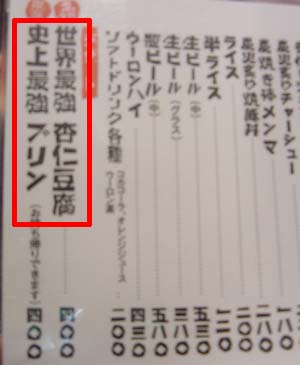 炙焼きチャーシュー
炙焼き味メンマ
ライス
半ライス
一二〇
生ビール(中)
五三〇
生ビール(グラス)
三八〇
瓶ビール(中)
五八〇
ウーロンハイ
四三〇
ソフトドリンク各種
コカコーラ、オレンジジュース
ウーロン茶
二〇〇
世界最強 杏仁豆腐
四〇〇
史上最強 プリン
(お持ち帰りできます)
四〇〇